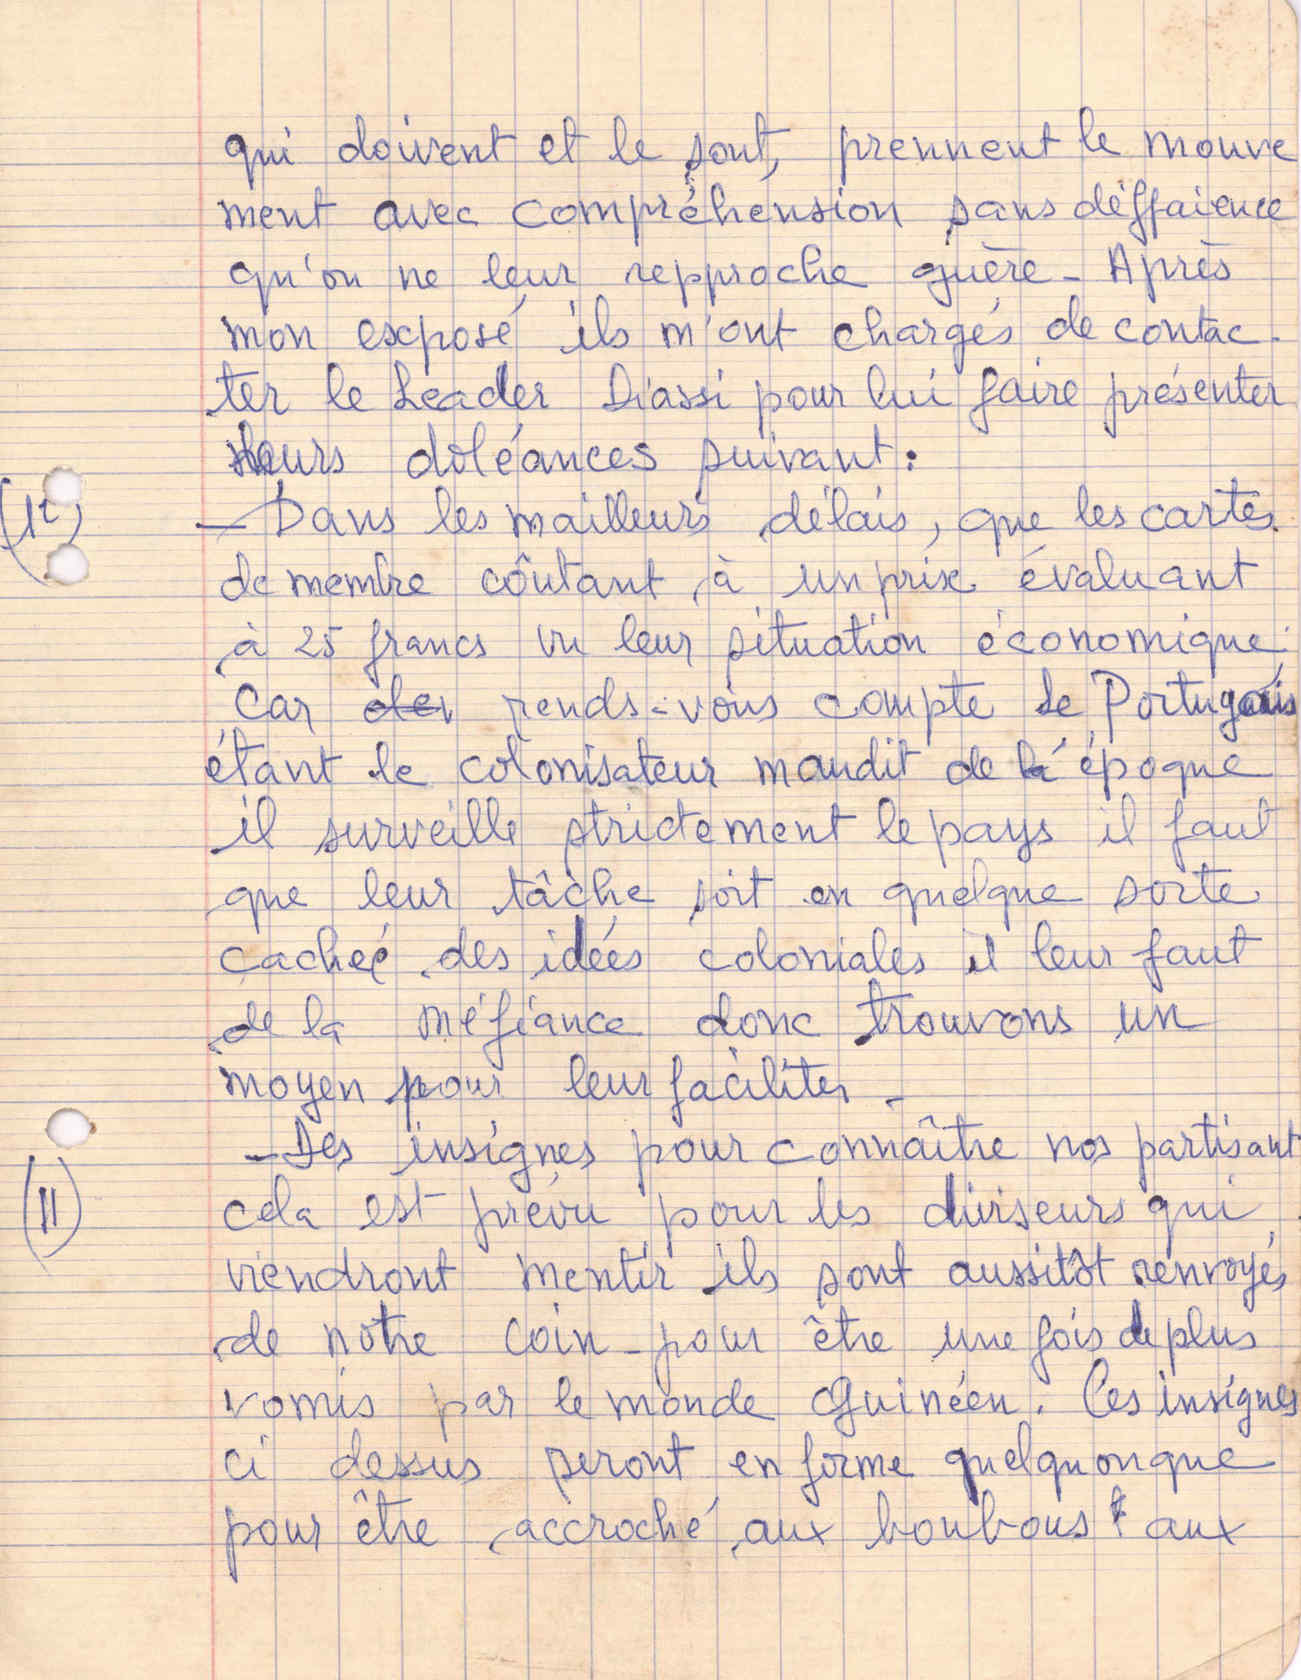 qui doivent et le sont, prennent le mouve
ment avec compréhension sans déffaience
qu'on ne leur repproche guère - Après
mon exposé ils m'ont chargés de contac-
ter le Leader Diassi pour lui faire présenter
leurs doléances suivant :
- Dans les mailleurs délais, que les cartes
de membre coûtant à un prix évaluant
à 25 francs vu leur situation économique.
Car rends-vous compte le Portugais
étant le colonisateur maudit de l'époque
il surveille strictement le pays il faut
que leur tâche soit en quelque sorte
cacheé des idées coloniales il leur faut
de la méfiance donc trouvons un
moyen pour leur faciliter -
- Des insignes pour connaître nos partisant
cela est prévu pour les diviseurs qui
viendront mentir ils sont aussitôt renvoyés
de notre coin - pour être une fois de plus
vomis par le monde Guinéen. Ces insignes
ci dessus seront en forme quelquonque
pour être accroché aux boubous & aux
(11)